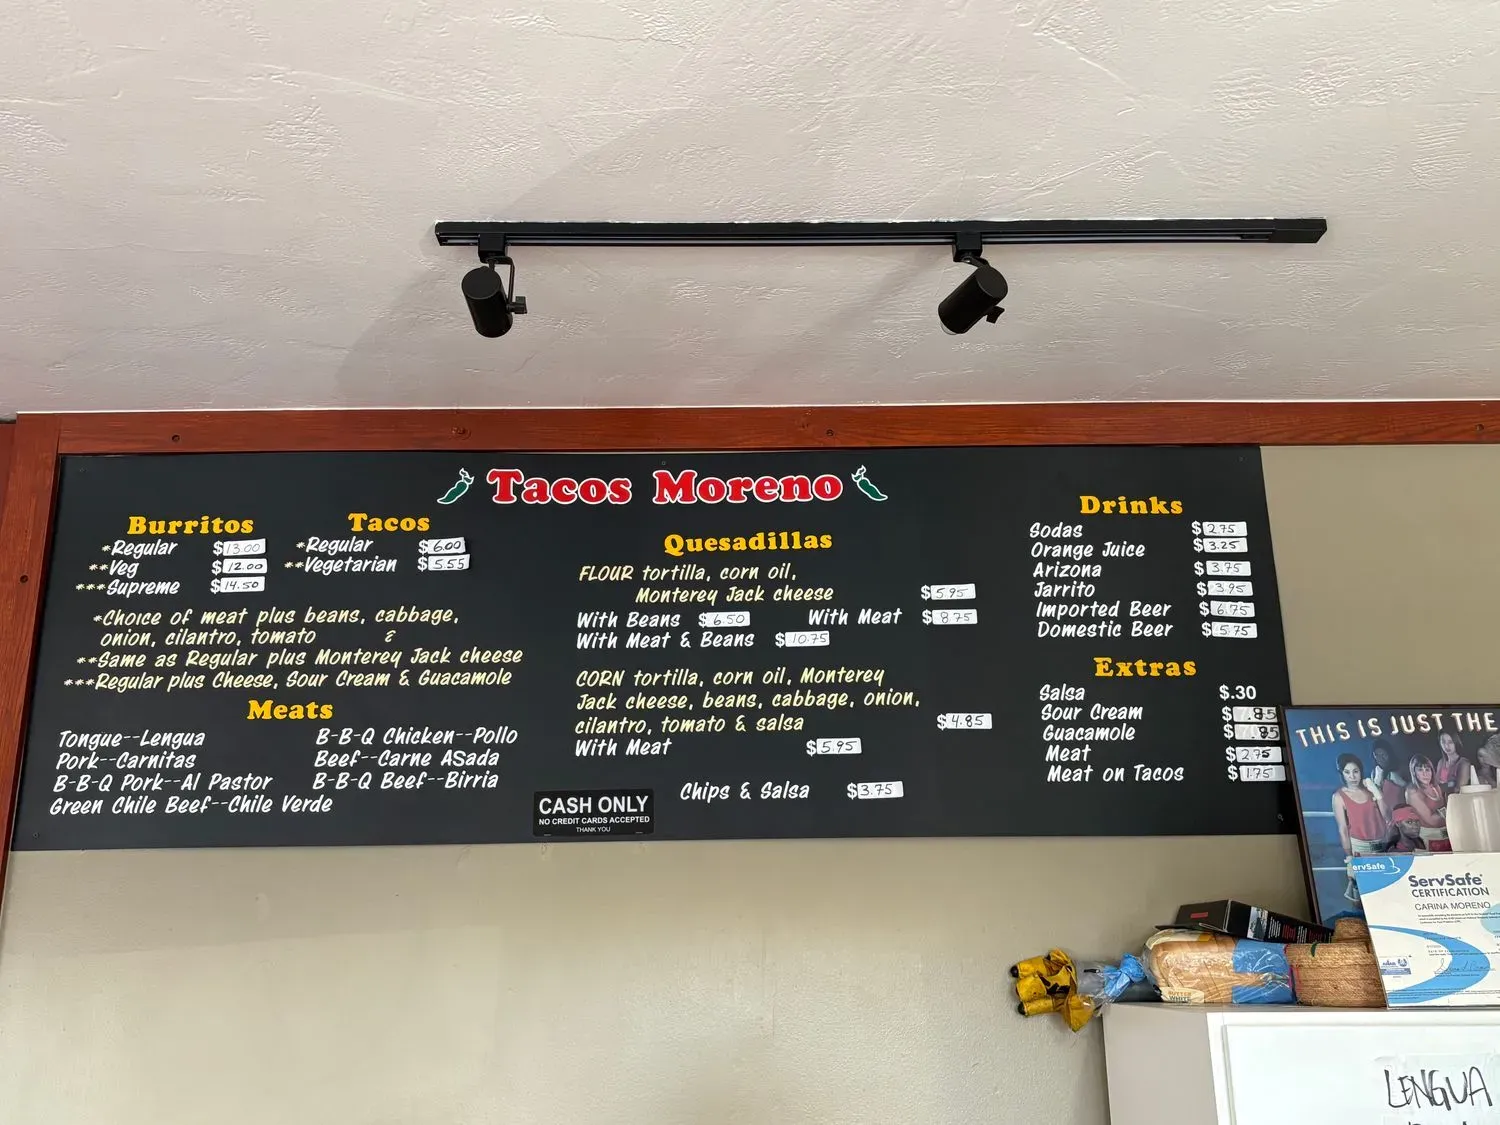 Tacos Moreno
Burritos
*Regular $13.00
**Veg $12.00
***Supreme $14.50
Tacos
*Regular $6.00
**Vegetarian $5.55
*Choice of meat plus beans, cabbage,
onion, cilantro, tomato &
**Same as Regular plus Monterey Jack cheese
***Regular plus Cheese, Sour Cream & Guacamole
Meats
Tongue--Lengua
Pork--Carnitas
B-B-Q Pork--Al Pastor
Green Chile Beef--Chile Verde
B-B-Q Chicken--Pollo
Beef--Carne ASada
B-B-Q Beef--Birria
Quesadillas
FLOUR tortilla, corn oil,
Monterey Jack cheese $5.95
With Beans $6.50 With Meat $8.75
With Meat & Beans $10.75
CORN tortilla, corn oil, Monterey
Jack cheese, beans, cabbage, onion,
cilantro, tomato & salsa $4.85
With Meat $5.95
Chips & Salsa $3.75
CASH ONLY
NO CREDIT CARDS ACCEPTED
THANK YOU
Drinks
Sodas $2.75
Orange Juice $3.25
Arizona $3.75
Jarrito $3.95
Imported Beer $6.75
Domestic Beer $5.75
Extras
Salsa $.30
Sour Cream $.85
Guacamole $.85
Meat $2.75
Meat on Tacos $1.75
THIS IS JUST THE
ervSafe
ServSafe
CERTIFICATION
CARINA MORENO
BUTTER
WHITE
LENGUA